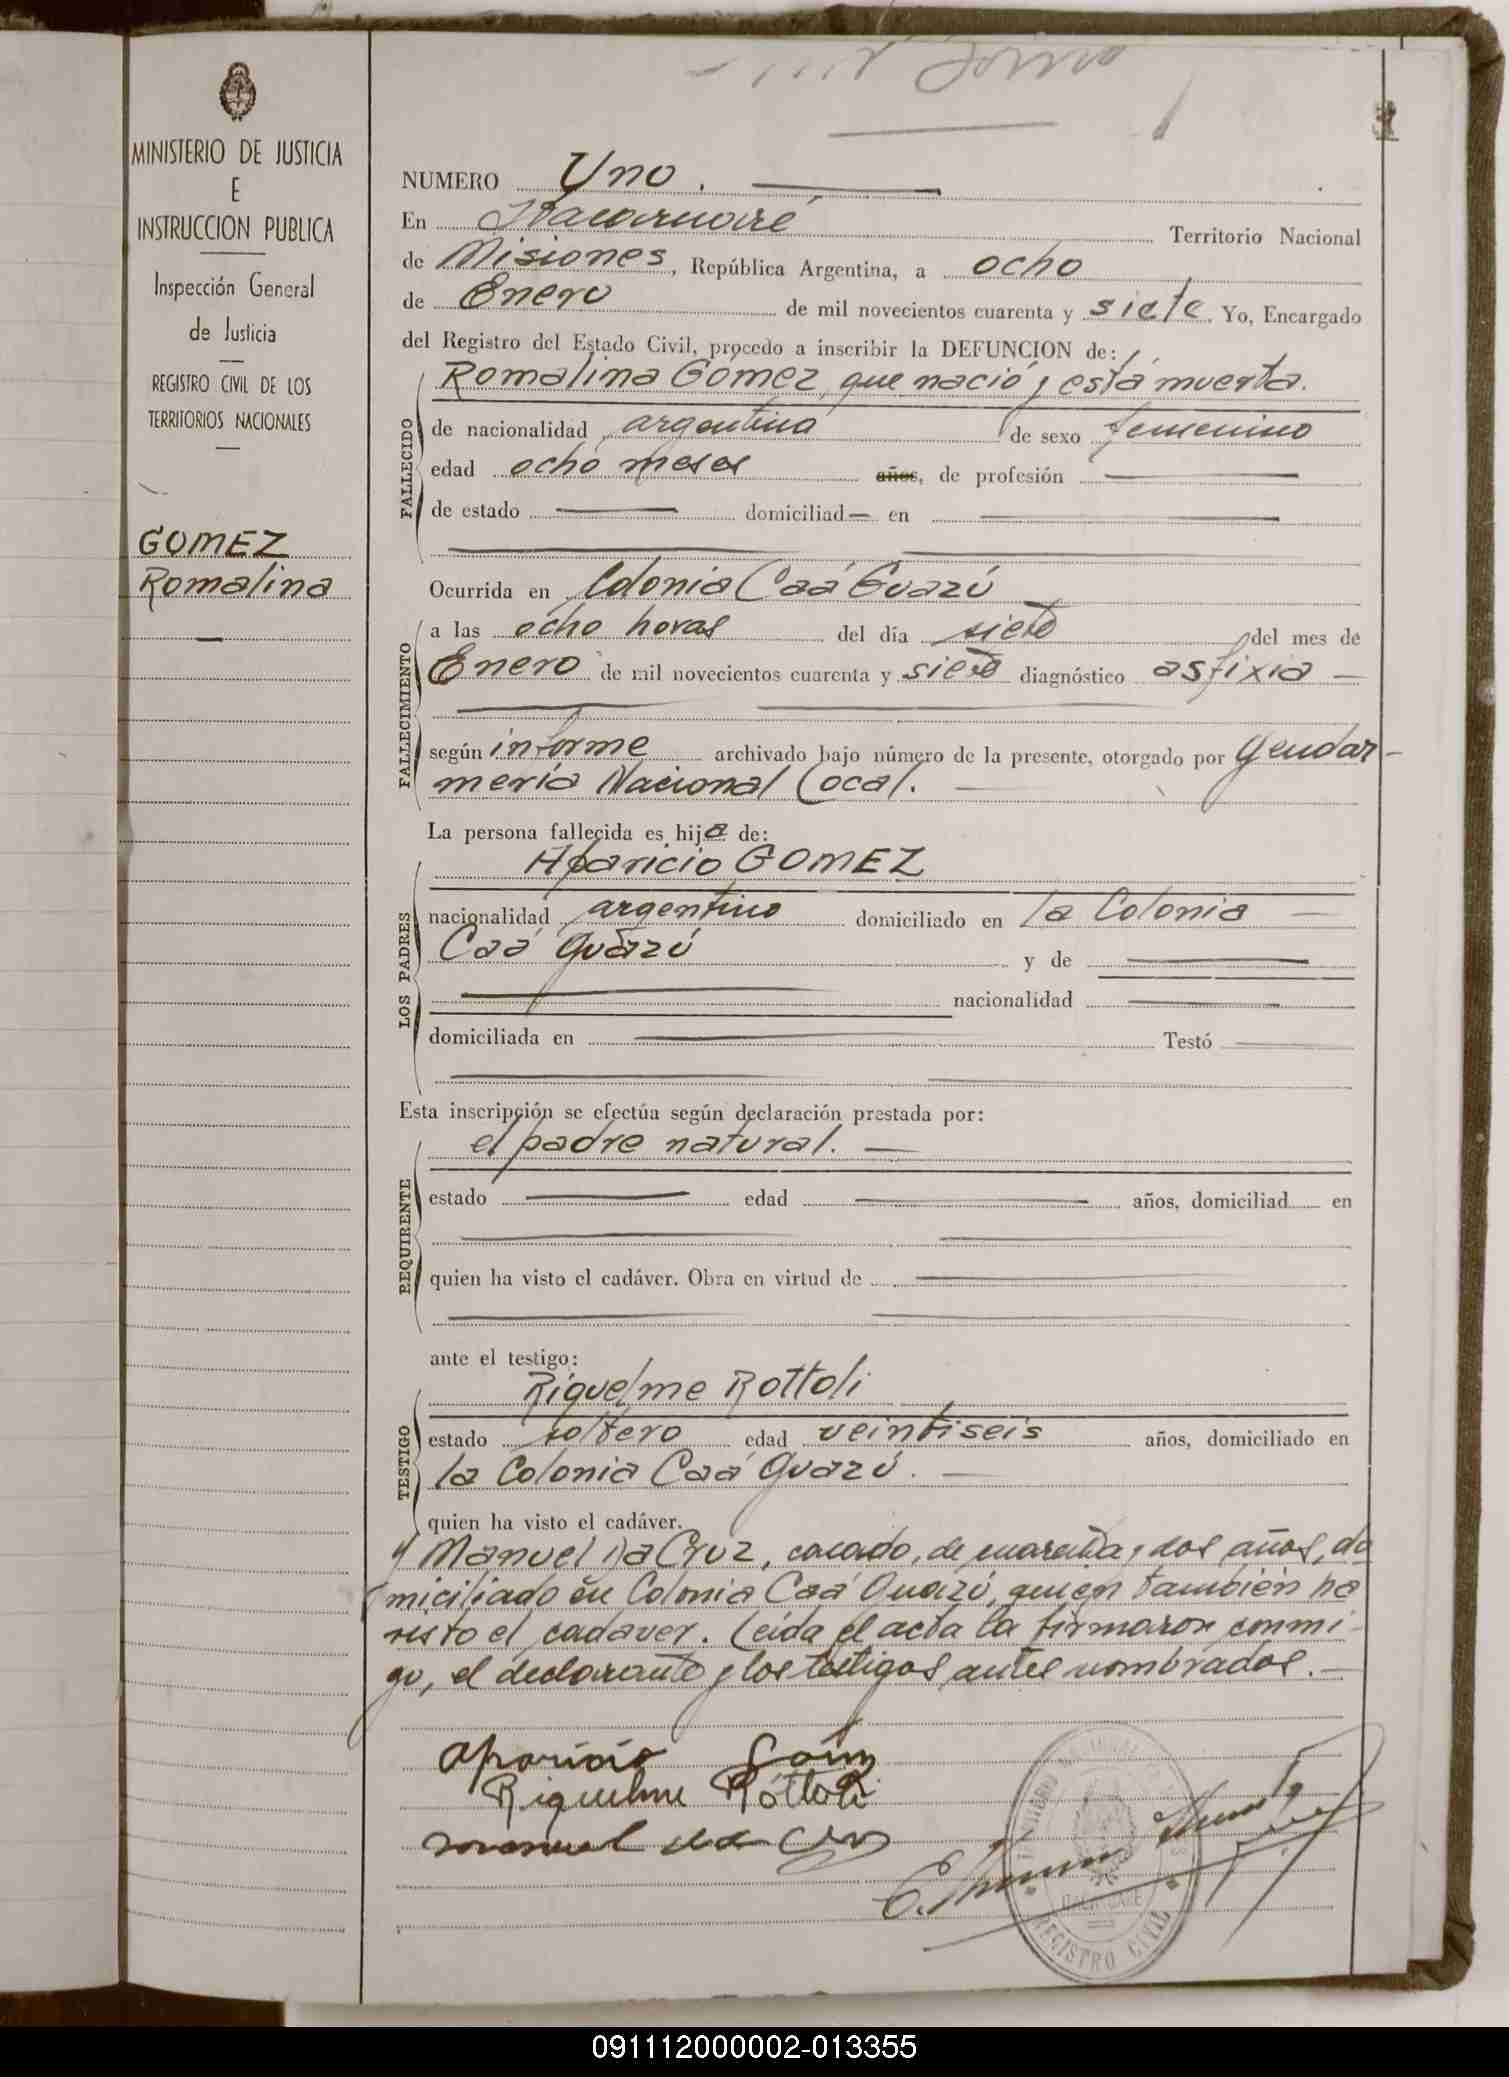 MINISTERIO DE JUSTICIA
E
INSTRUCCION PUBLICA
Inspección General
de Justicia
REGISTRO CIVIL DE LOS
TERRITORIOS NACIONALES
GOMEZ
Romalina
NUMERO Uno.
En Itacaruaré Territorio Nacional
de Misiones, República Argentina, a ocho
de Enero de mil novecientos cuarenta y siete. Yo, Encargado
del Registro del Estado Civil, procedo a inscribir la DEFUNCION de:
Romalina Gómez, que nació y está muerta.
FALLECIDO
de nacionalidad argentina de sexo femenino
edad ocho meses años, de profesión —
de estado — domiciliad— en —
Ocurrida en Colonia Caá Guazú
FALLECIMIENTO
a las ocho horas del día siete del mes de
Enero de mil novecientos cuarenta y siete diagnóstico asfixia —
según informe archivado bajo número de la presente, otorgado por Gendar-
mería Nacional Local. —
La persona fallecida es hija de:
LOS PADRES
Aparicio GOMEZ
nacionalidad argentino domiciliado en la Colonia —
Caá Guazú y de —
— nacionalidad —
domiciliada en — Testó —
Esta inscripción se efectúa según declaración prestada por:
REQUIRENTE
el padre natural. —
estado — edad — años, domiciliad en
quien ha visto el cadáver. Obra en virtud de —
ante el testigo:
TESTIGO
Riquelme Rottoli
estado soltero edad veintiseis años, domiciliado en
la Colonia Caá Guazú. —
quien ha visto el cadáver.
y Manuel Da Cruz, casado, de cuarenta y dos años, do
miciliado en Colonia Caá Guazú, quien también ha
visto el cadáver. Leída el acta la firmaron conmi-
go, el declarante y los testigos antes nombrados. —
Aparicio Gómz
Riquelme Róttoli
manuel da Cruz
REGISTRO CIVIL
091112000002-013355